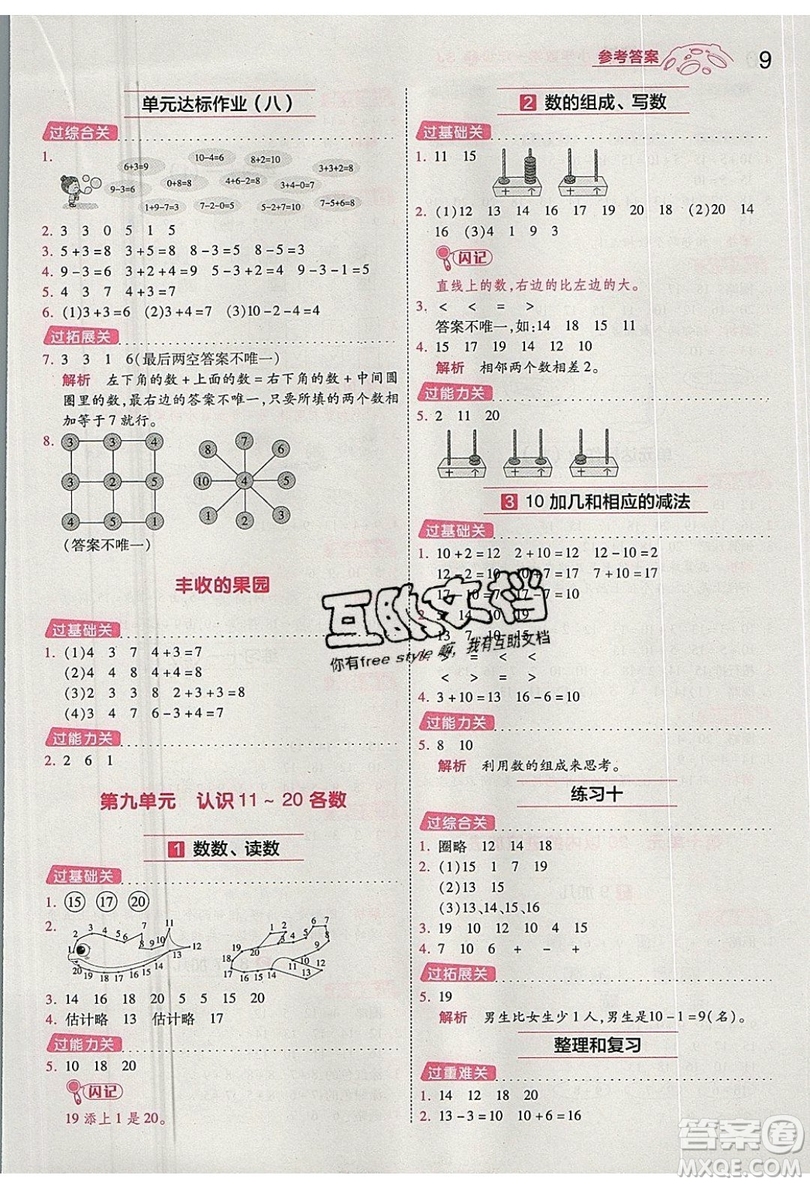 参考答案
9
单元达标作业(八)
过综合关
1.
6+3=9 10-4=6 8+2=10
9-3=6 0+8=8 3+4-0=7
1+9-7=3 8-8+3=3 7-5+6=8
2. 3 3 0 5 1 5
3. 5+3=8 3+5=8 8-5=3 8-3=5
4. 9-3=6 9-6=3 3+6=9 6+3=9
5. 4 3 7 4+3=7
6. (1)3+3=6 (2)3+4=7 (3)10-2-4=4
过拓展关
7. 3 3 1 6(最后两空答案不唯一)
解析 左下角的数+上面的数+中间圆
圈里的数,最右边的答案不唯一,只要所填的两个数相
加等于7就行。
8.
3 4 5
9 2 1
4 5 1
8 7 6
10 4 4
1 1 2
(答案不唯一)
丰收的果园
过基础关
1. (1)4 3 7 4+3=7
(2)4 4 8 4+4=8
(3)2 2 4 8 8-2-2=4
(4)3 2 4 7 6-3+4=7
过能力关
2. 2 6 1
第九单元 认识11~20各数
1 数数、读数
过基础关
1. 15 17 20
2.
3. 14 16 18 20 15 14 18
4. 估计略 13 估计略 17
过能力关
5. 10 18 20
闪记
19添上1是20。
2 数的组成、写数
过基础关
1. 11 15
十 个 十 个
2. (1)12 13 14 16 17 18 (2)20 14
16 (3)4 1 9 3
闪记
直线上的数,右边的比左边的大。
3. < < = >
答案不唯一,如:14 18 15 11
4. 15 17 19 20 16 14
解析 相邻两个数相差2。
过能力关
5. 2 11 20
十 个 十 个 十 个
3 10加几和相应的减法
过基础关
1. 10+2=12 2+10=12 12-10=2
12-2=10 10+7=17 7+10=17
17-10=7 17-7=10
13 7 10 15 10
> = < <
< > < =
4. 3+10=13 16-6=10
过能力关
5. 8 10
解析 利用数的组成来思考。
练习十
过综合关
1. 圈略 12 14 18
2. (1)15 1 5 7 19
(2)13 15
(3)13、14、15、16
3. 19 10 15 14 12 10
4. 7 10 6 + - +
过拓展关
5. 19
解析 男生比女生少1人,10-1=9(名)。
整理和复习
过重难关
1. 14 12 18 20
2. 13-3=10 10+6=16
互助文档
你有free style嘛,我有互助文档
答案圈
MXQE.COM